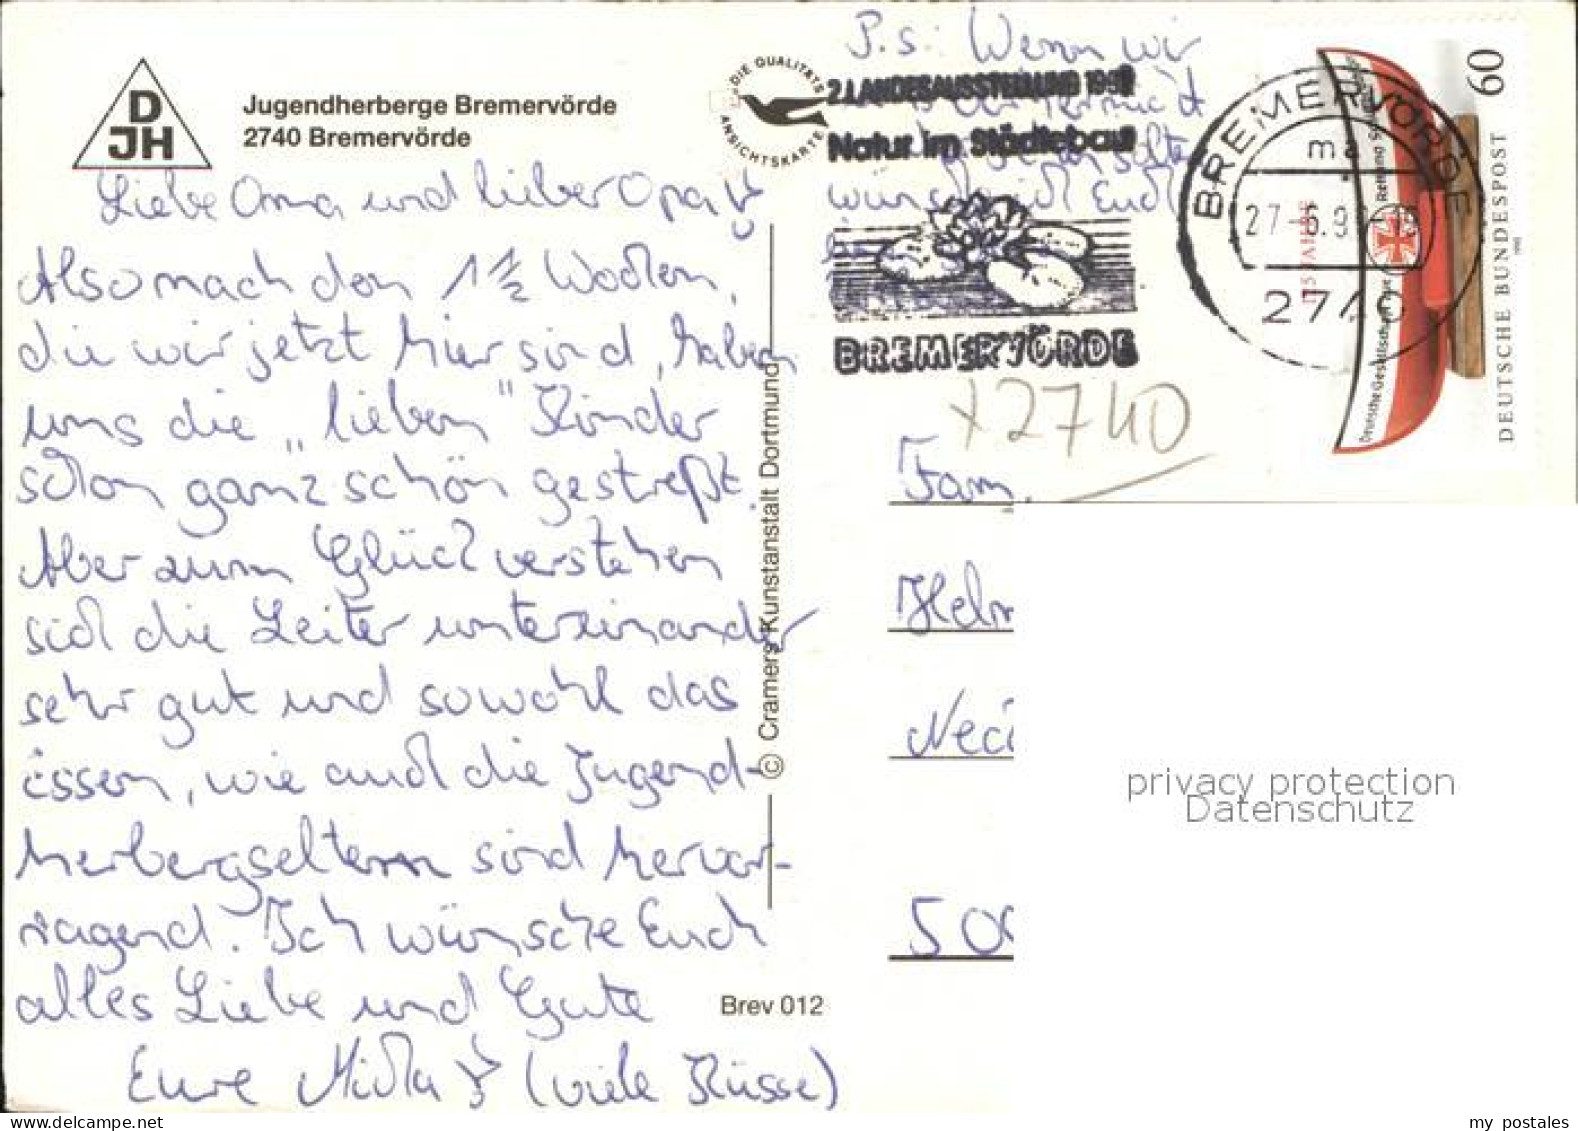 DJH
Jugendherberge Bremervörde
2740 Bremervörde
Liebe Oma und lieber Opa!
Also nach den 1 1/2 Wochen,
die wir jetzt hier sind, haben
uns die „lieben" Kinder
schon ganz schön gestreßt.
Aber zum Glück verstehen
sich die Leiter untereinander
sehr gut und sowohl das
Essen, wie auch die Jugend-
herbergseltern sind hervor-
ragend. Ich wünsche Euch
alles Liebe und Gute
Eure Micha (viele Küsse)
© Cramers Kunstanstalt Dortmund
Brev 012
DIE QUALITÄTS
ANSICHTSKARTE
P.s: Wenn wir
wünsch ich Euch
2. LANDESAUSSTELLUNG
Natur im Städtebau
BREMERVÖRDE
BREMERVÖRDE
27
2740
60
DEUTSCHE BUNDESPOST
Deutsche Gesellschaft zur Rettung
JAHRE
x2740
Fam.
Helm
Neci
500
privacy protection
Datenschutz
my postales